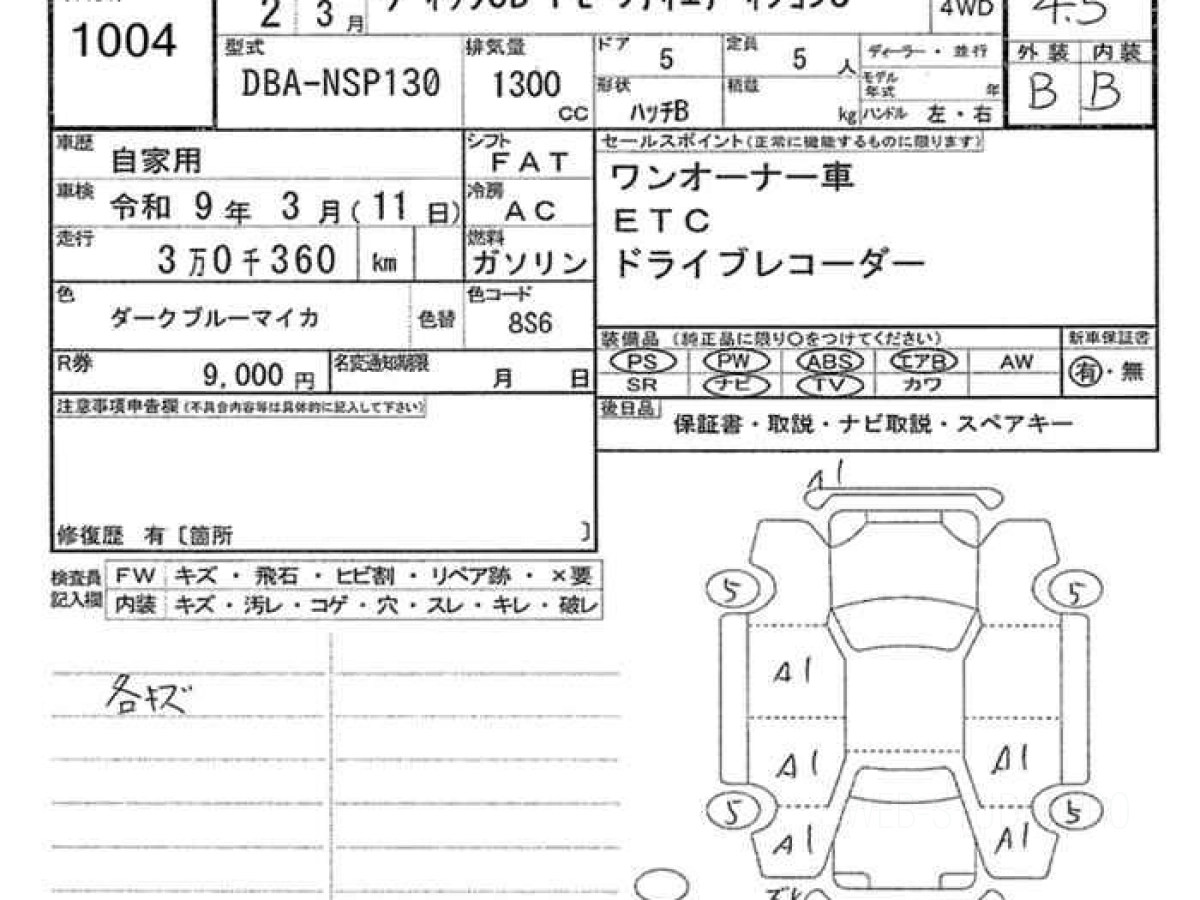 1004
2 3月
4WD
4.5
型式 DBA-NSP130
排気量 1300 cc
ドア 5
定員 5 人
形状 ハッチB
積載 kg
ディーラー・並行
モデル年式 年
ハンドル 左・右
外装 内装
B B
車歴 自家用
シフト FAT
車検 令和 9年 3月(11日)
冷房 AC
走行 3万0千360 km
燃料 ガソリン
色 ダークブルーマイカ 色替
色コード 8S6
R券 9,000円
名変通知期限 月 日
セールスポイント(正常に機能するものに限ります)
ワンオーナー車
ETC
ドライブレコーダー
装備品 (純正品に限り○をつけてください) 新車保証書
PS PW ABS エアB AW
SR ナビ TV カワ
有・無
後日品 保証書・取説・ナビ取説・スペアキー
注意事項申告欄(不具合内容等は具体的に記入して下さい)
修復歴 有〔箇所 〕
検査員記入欄
FW キズ・飛石・ヒビ割・リペア跡・×要
内装 キズ・汚レ・コゲ・穴・スレ・キレ・破レ
各キズ
A1
5 5
A1
A1 A1
5 5
A1 A1